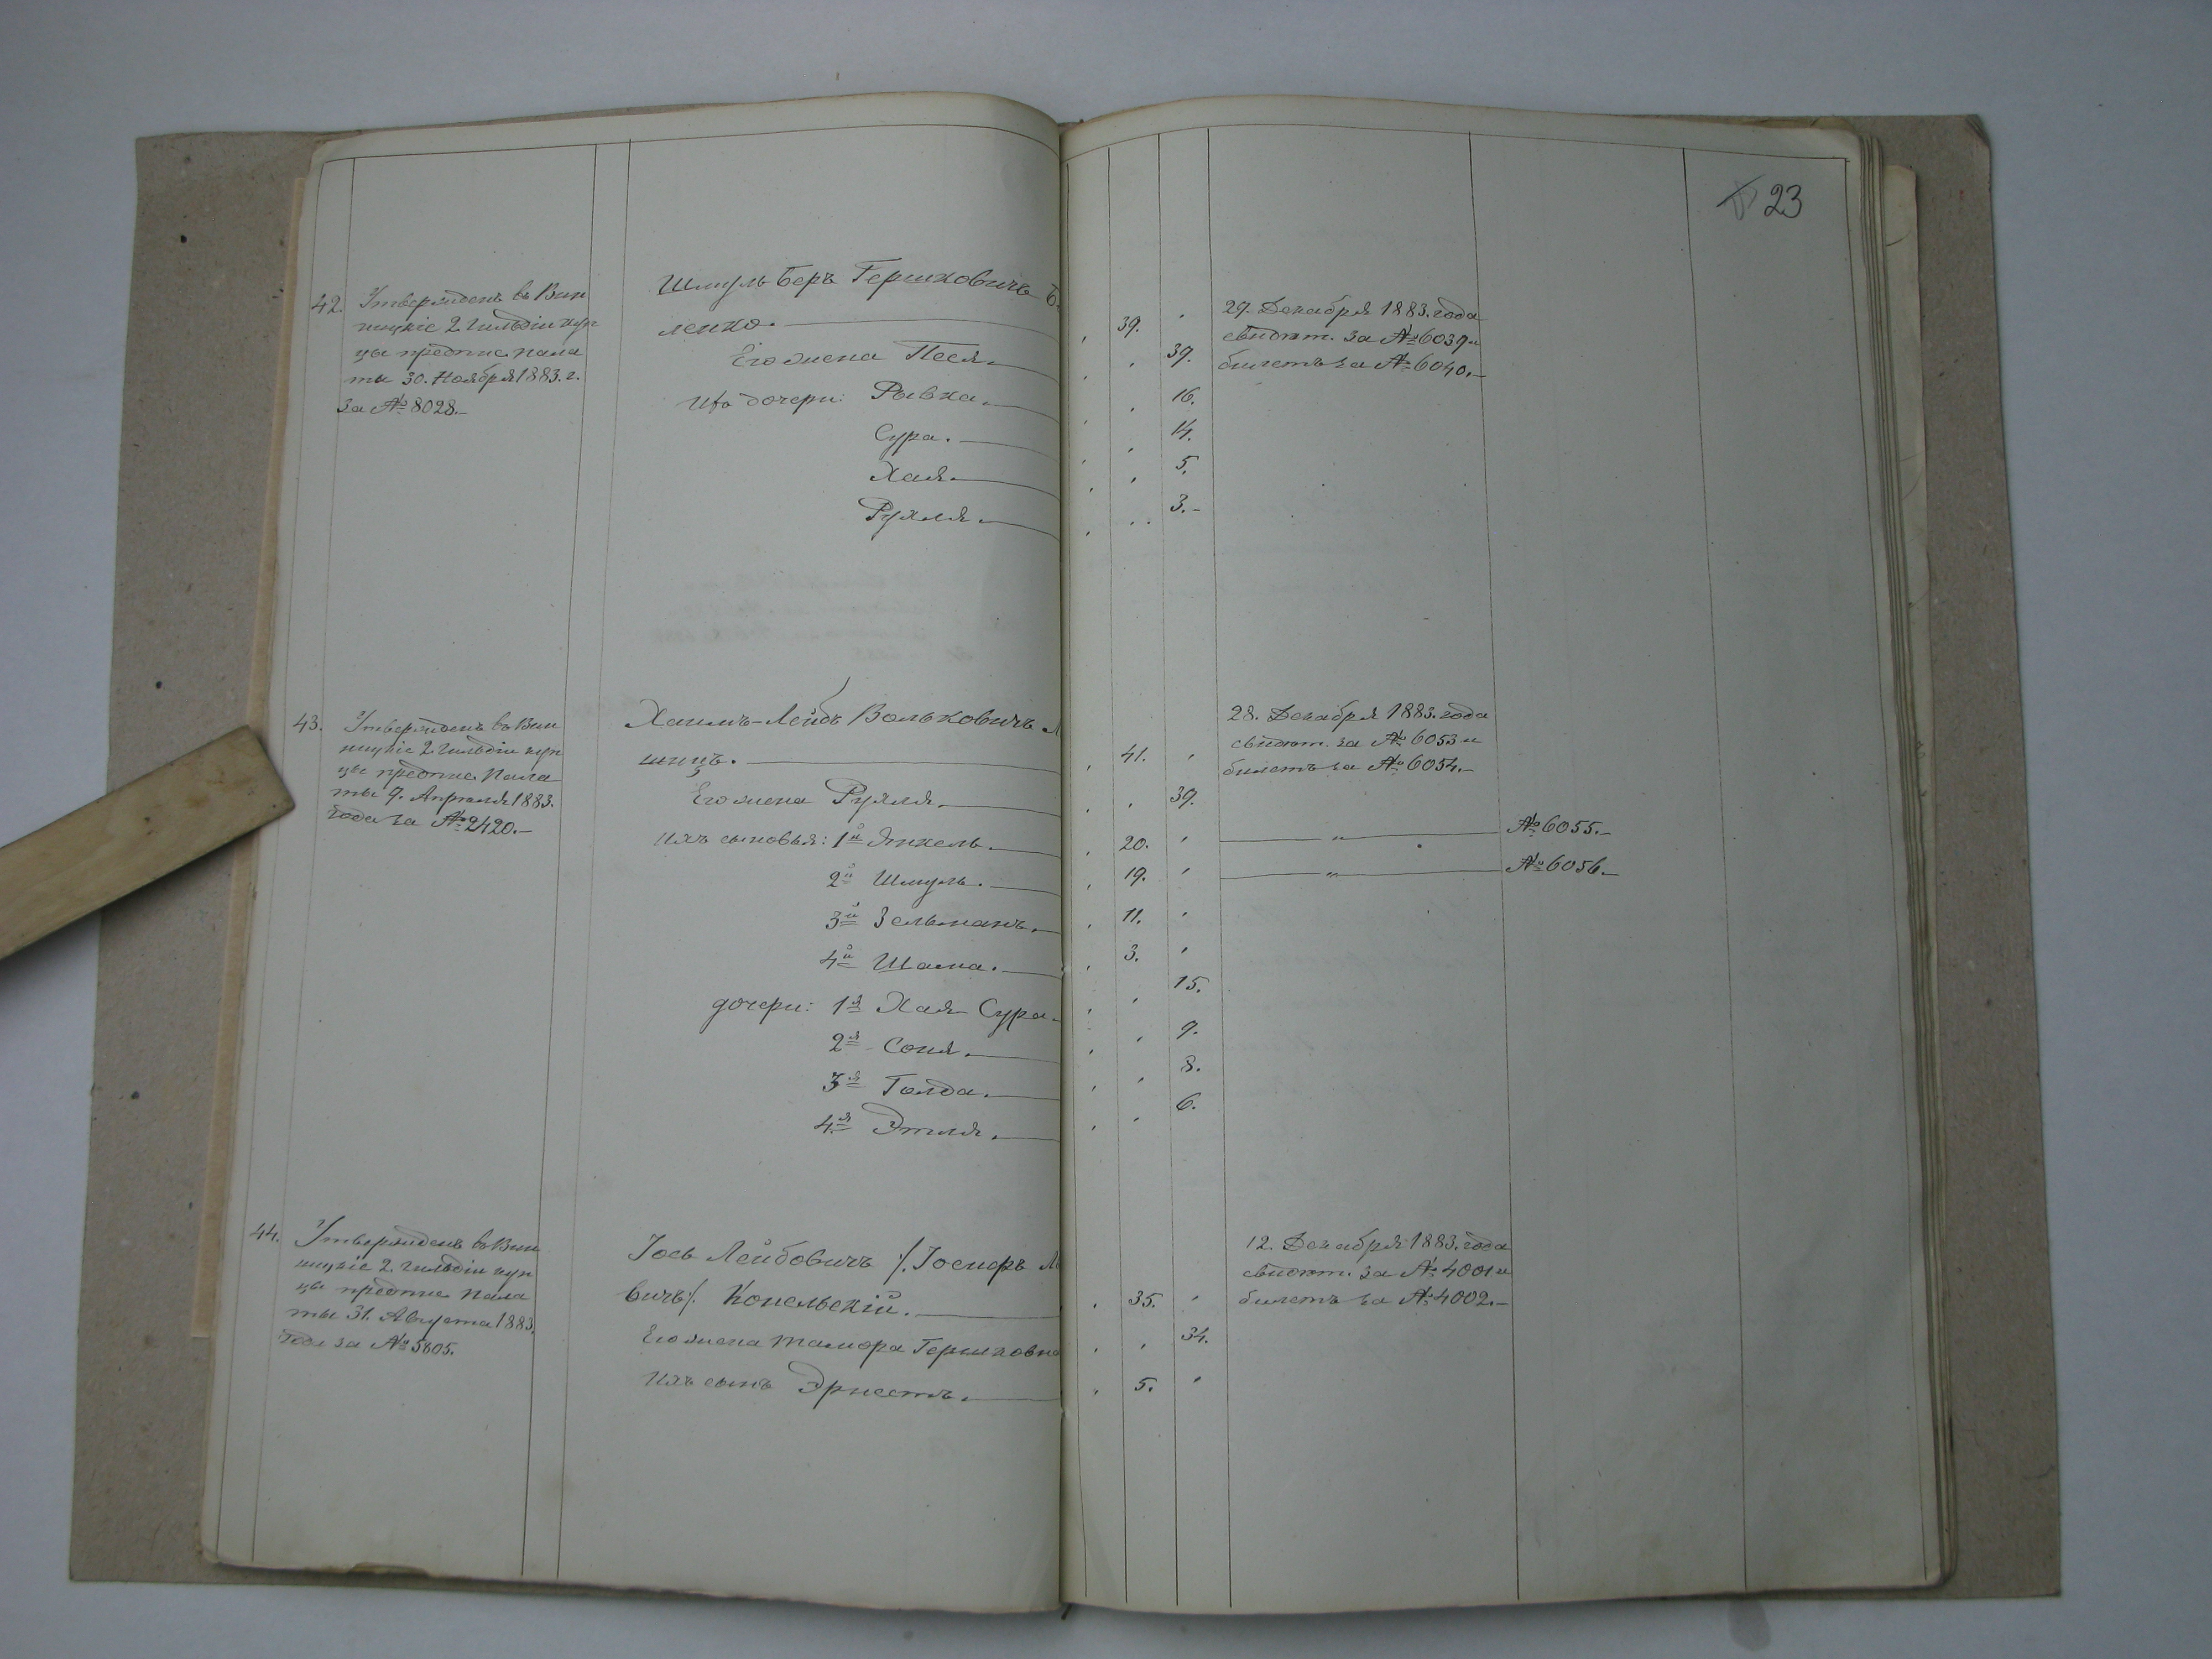 23
42. Утвержденъ въ Вин
ницкіе 2 гильдіи куп
цы предпис. пала
ты 30. Ноября 1883. г.
за № 8028.
Шмуль Беръ Гершковичъ Б
ленко. 39.
Его жена Песя. 39.
Ихъ дочери: Рывка. 16.
Сура. 14.
Хая. 5.
Рухля. 3.
29. Декабря 1883. года
свидѣт. за № 6039 и
билетъ за № 6040.
43. Утвержденъ въ Вин
ницкіе 2 гильдіи куп
цы предпис. Пала
ты 9. Апрѣля 1883.
года за № 2420.
Хаимъ-Лейбъ Вольковичъ Л
шицъ. 41.
Его жена Рухля. 39.
Ихъ сыновья: 1й Янкель. 20. № 6055.
2й Шмуль. 19. № 6056.
3й Зельманъ. 11.
4й Шама. 3.
дочери: 1я Хая Сура 15.
2я Соня. 9.
3я Голда. 8.
4я Этля. 6.
28. Декабря 1883. года
свидѣт. за № 6053 и
билетъ за № 6054.
44. Утвержденъ въ Вин
ницкіе 2. гильдіи куп
цы предпис. Пала
ты 31. Августа 1883.
года за № 5805.
Іось Лейбовичъ /. Іосифъ Ль
вичъ/. Конельскій. 35.
Его жена Тамара Гершковна 34.
Ихъ сынъ Эрнестъ. 5.
12. Декабря 1883. года
свидѣт. за № 4001 и
билетъ за № 4002.